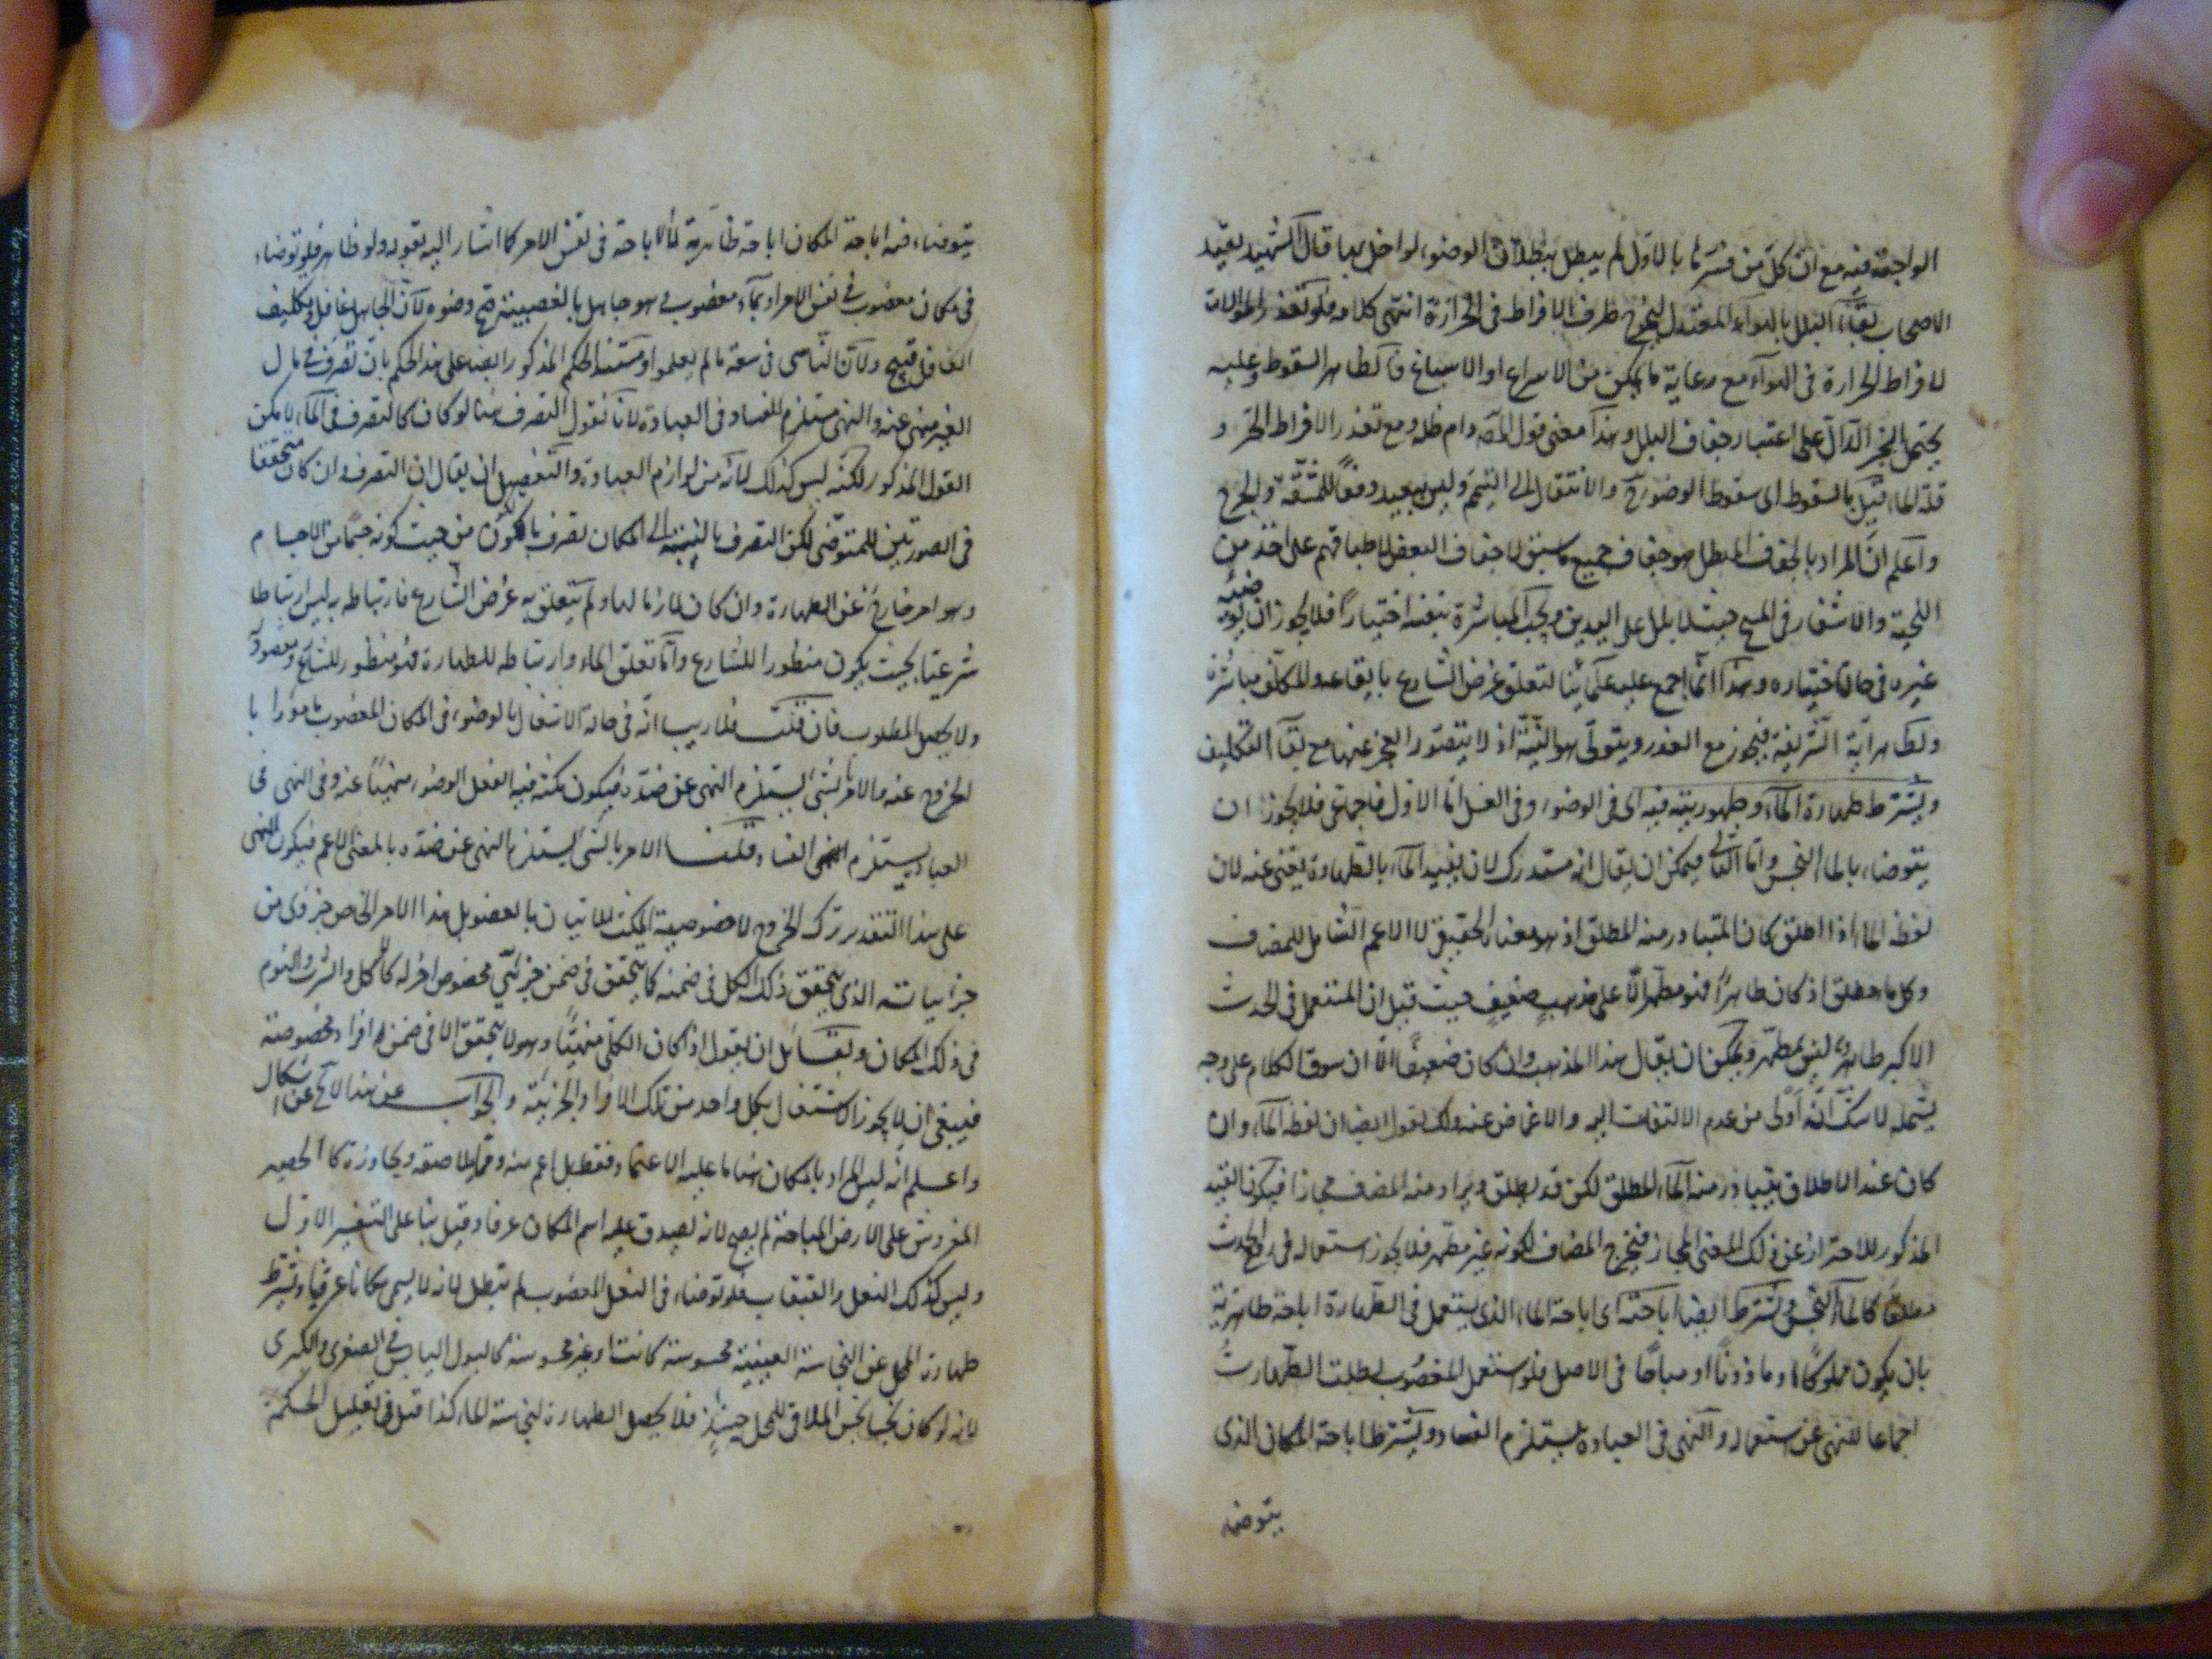 الواجبة فيه مع ان كل من فسرها بالاول لم يبطل بطلان الوضوء لو اخل بها قال الشهيد بقيد
الاصحاب بقاء البلل بالهواء المعتدل ليخرج طرف الافراط في الحرارة انتهى كلامه فلو تعذر
لافراط الحرارة في الهواء مع رعاية ما يمكن من الاسراع او الاسباغ فالظاهر السقوط وعليه
يحتمل الخبر الدال على اعتبار جفاف البلل وهذا معنى قول المص دام ظله ومع تعذر الافراط الحر و
قلة الماء قيل بالسقوط اى سقوط الوضوء ح والانتقال الى التيمم وليس ببعيد دفعا للمشقة والحرج
واعلم ان المراد بالجفاف المبطل هو جفاف جميع ما سبق لا جفاف البعض لاطباقهم على اخذ من
اللحية والاشفار في المسح حيث لا بلل على اليدين ويجب المباشرة بنفسه اختيارا فلا يجوز ان يوضئه
غيره في حال اختياره وهذا مما اجمع عليه علمائنا لتعلق غرض الشارع بايقاعه والمكلف مباشرة
ولظاهر آية الشريفة فيجوز مع العذر ويتولى هو النية اذ لا يتصور العجز عنها مع بقاء التكليف
ويشترط طهارة الماء وطهوريته فيه اى في الوضوء وفي الغسل اما الاول فاجماعى فلا يجوز ان
يتوضاء بالماء النجس واما الثانى فيمكن ان يقال انه مستدرك لان تقييد الماء بالطهارة يغنى عنه لان
لفظ الماء اذا اطلق كان المتبادر منه المطلق اذ هو معناه الحقيقى لا الاعم الشامل للمضاف
وكل ماء مطلق اذ كان طاهرا فهو مطهر الا على مذهب ضعيف حيث قيل ان المستعمل في الحدث
الاكبر طاهر وليس بمطهر ويمكن ان يقال هذا المذهب وان كان ضعيفا الا ان سوق الكلام على وجه
يشمله لا شك انه اولى من عدم الالتفات اليه والاغماض عنه ولك ان تقول ايضا ان لفظ الماء وان
كان عند الاطلاق يتبادر منه الماء المطلق لكن قد يطلق ويراد منه المضاف مجازا فيكون القيد
المذكور للاحتراز عن ذلك المعنى المجاز فيخرج المضاف لكونه غير مطهر فلا يجوز استعماله في رفع الحدث
مطلقا كالماء النجس ويشترط ايضا اباحته اى اباحة الماء الذى يستعمل في الطهارة اباحة ظاهرية
بان يكون مملوكا او ماذونا او مباحا في الاصل فلو استعمل المغصوب بطلت الطهارت
اجماعا للنهى عن استعماله والنهى في العبادة يستلزم الفساد ويشترط اباحة المكان الذى
يتوضاء
يتوضاء فيه اباحة المكان اباحة ظاهرية لا الاباحة في نفس الامر كما اشار اليه بقوله ولو ظاهر فلو توضاء
في مكان مغصوب في نفس الامر او بماء مغصوب وهو جاهل بالغصبية صح وضوءه لان الجاهل غافل وتكليف
الغافل قبيح ولان الناس في سعة ما لم يعلموا ومستند الحكم المذكور ايضا على هذا الحكم بان تصرف في مال
الغير منهى عنه والنهى مستلزم للفساد في العبادة لانا نقول التصرف هنا لو كان كالتصرف في الماء لامكن
القول المذكور لكنه ليس كذلك لانه من لوازم العبادة والتفصيل ان يقال ان التصرف وان كان متحققا
في الصورتين للمتوضى لكن التصرف بالنسبة الى المكان تصرف بالكون من حيث كونه جسما من الاجسام
وهو امر خارج عن الطهارة وان كان لازما لها ولم يتعلق به غرض الشارع فارتباطه به ليس ارتباطا
شرعيا بحيث يكون منظورا للشارع واما تعلق الماء وارتباطه للطهارة فهو منظور للشارع ومقصوده
ولا يحصل المطلوب فان قلت فلا ريب انه في حالة الاشتغال بالوضوء في المكان المغصوب مامورا با
لخروج عنه والامر بالشئ يستلزم النهى عن ضده فيكون مكثه فيه لفعل الوضوء منهيا عنه وفي النهى في
العبادة يستلزم الفساد قلنا الامر بالشئ يستلزم النهى عن ضده بالمعنى الاعم فيكون النهى
على هذا التقدير ترك الخروج لا خصوصية المكث للاتيان بالعضو بل هذا الامر الخاص جزوى من
جزئياته الذى يتحقق ذلك الكل في ضمنه كما يتحقق في ضمن جزئى مخصوص اخر له كالاكل والشرب والنوم
في ذلك المكان ولقائل ان يقول اذا كان الكلى منهيا وهو لا يتحقق الا في ضمن افراد مخصوصة
فينبغى ان لا يجوز الاشتغال بكل واحد من تلك الافراد الجزئية والجواب عن هذا لا يخ عن اشكال
واعلم انه ليس المراد بالمكان هنا ما عليه الاعتماد فقط بل اعم منه ومما يلاصقه ويجاوزه كالحصير
المفروش على الارض المباحة لم يصح لانه يصدق عليه اسم المكان عرفا وقيل بنا على التفسير الاول
وليس كذلك النعل والقبقاب فلو توضاء في النعل المغصوب لم تبطل لانه لا يسمى مكانا عرفيا ويشترط
طهارة المحل عن النجاسة العينية محسوسة كانت او غير محسوسة كالبول اليابس في الصغرى والكبرى
لانه لو كان نجسا نجس الملاقى للمحل حينئذ فلا يحصل الطهارة لنجاسة الماء كذا قيل في تعليل الحكم